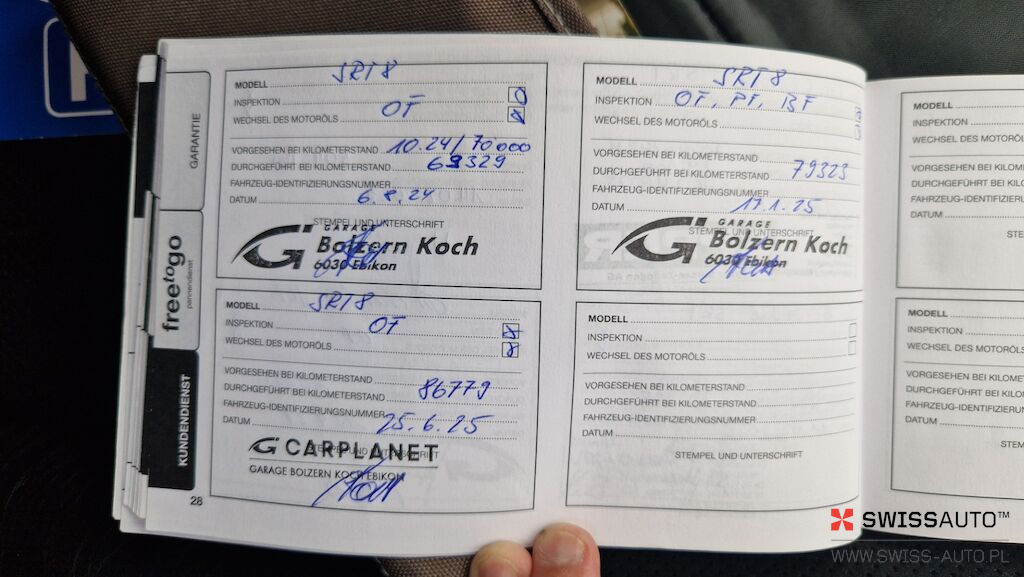 GARANTIE
freetogo
pannendienst
KUNDENDIENST
28
MODELL SRT8
INSPEKTION OF
WECHSEL DES MOTORÖLS
VORGESEHEN BEI KILOMETERSTAND 10.24/70000
DURCHGEFÜHRT BEI KILOMETERSTAND 69329
FAHRZEUG-IDENTIFIZIERUNGSNUMMER
DATUM 6.8.24
STEMPEL UND UNTERSCHRIFT
GARAGE
Bolzern Koch
6030 Ebikon
MODELL SRT8
INSPEKTION OF
WECHSEL DES MOTORÖLS
VORGESEHEN BEI KILOMETERSTAND
DURCHGEFÜHRT BEI KILOMETERSTAND 86779
FAHRZEUG-IDENTIFIZIERUNGSNUMMER
DATUM 25.6.25
STEMPEL UND UNTERSCHRIFT
CARPLANET
GARAGE BOLZERN KOCH EBIKON
MODELL SRT8
INSPEKTION OF, PF, BF
WECHSEL DES MOTORÖLS
VORGESEHEN BEI KILOMETERSTAND
DURCHGEFÜHRT BEI KILOMETERSTAND 79323
FAHRZEUG-IDENTIFIZIERUNGSNUMMER
DATUM 17.1.25
STEMPEL UND UNTERSCHRIFT
GARAGE
Bolzern Koch
6030 Ebikon
MODELL
INSPEKTION
WECHSEL DES MOTORÖLS
VORGESEHEN BEI KILOMETERSTAND
DURCHGEFÜHRT BEI KILOMETERSTAND
FAHRZEUG-IDENTIFIZIERUNGSNUMMER
DATUM
STEMPEL UND UNTERSCHRIFT
MODELL
INSPEKTION
WECHSEL DES MOTORÖLS
VORGESEHEN BEI KILOMETERS
DURCHGEFÜHRT BEI KILOMET
FAHRZEUG-IDENTIFIZIERUNGS
DATUM
MODELL
INSPEKTION
WECHSEL DES MOTORÖLS
VORGESEHEN BEI KILOMETER
DURCHGEFÜHRT BEI KILOME
FAHRZEUG-IDENTIFIZIERUNG
DATUM
SWISSAUTO™
WWW.SWISS-AUTO.PL